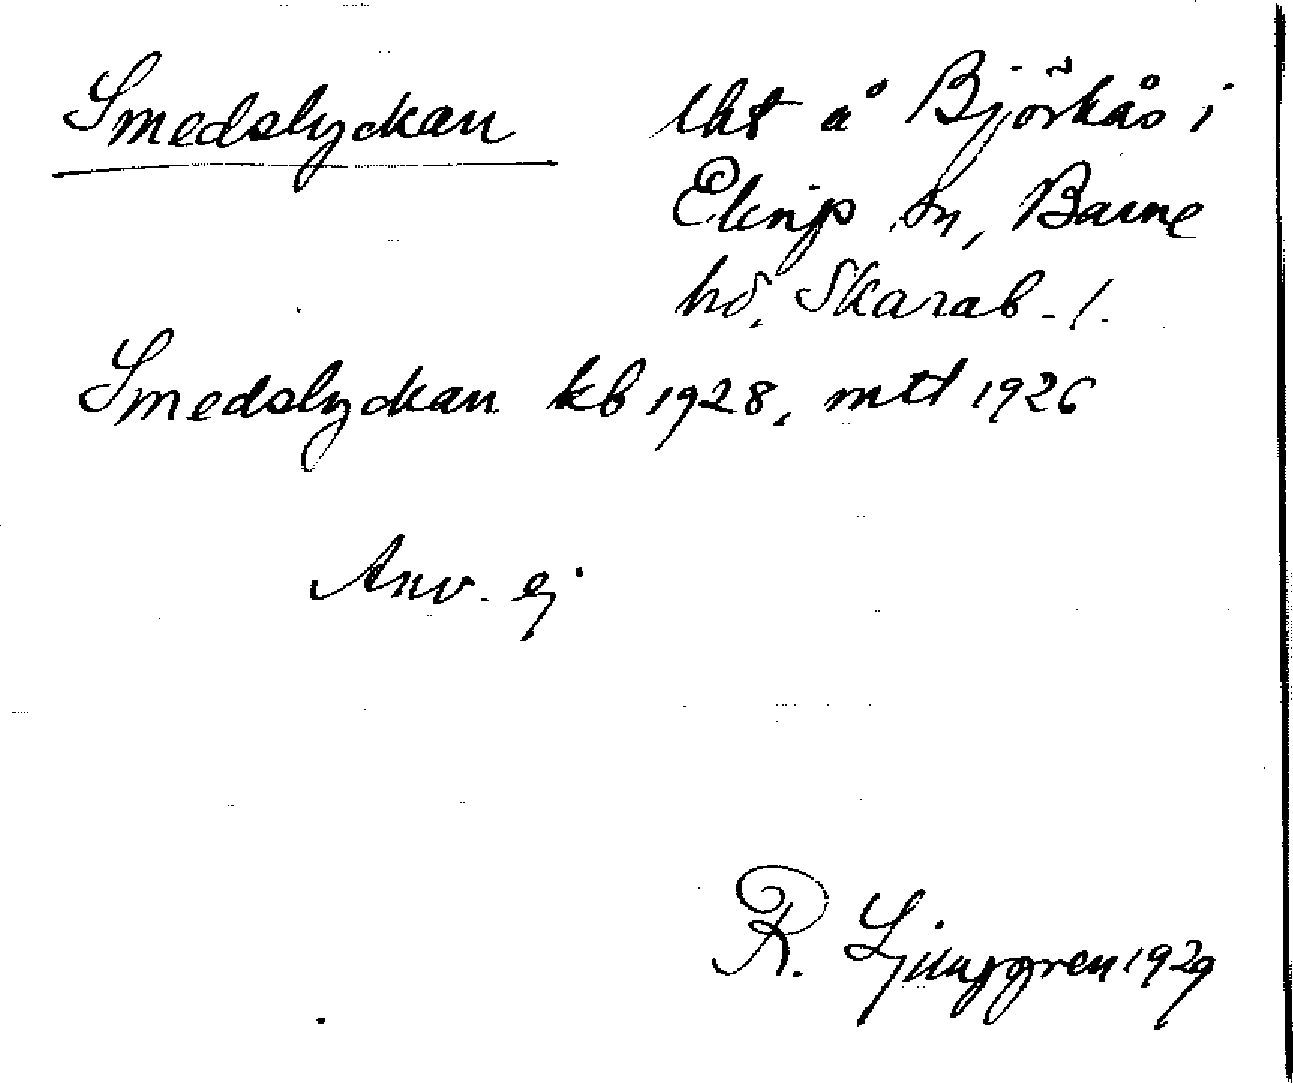 Smedslyckan lht å Björkås i
Eling sn, Barne
hd. Skarab. l.
Smedslyckan kb 1928, mtl 1926
Anv. ej
R. Ljunggren 1929